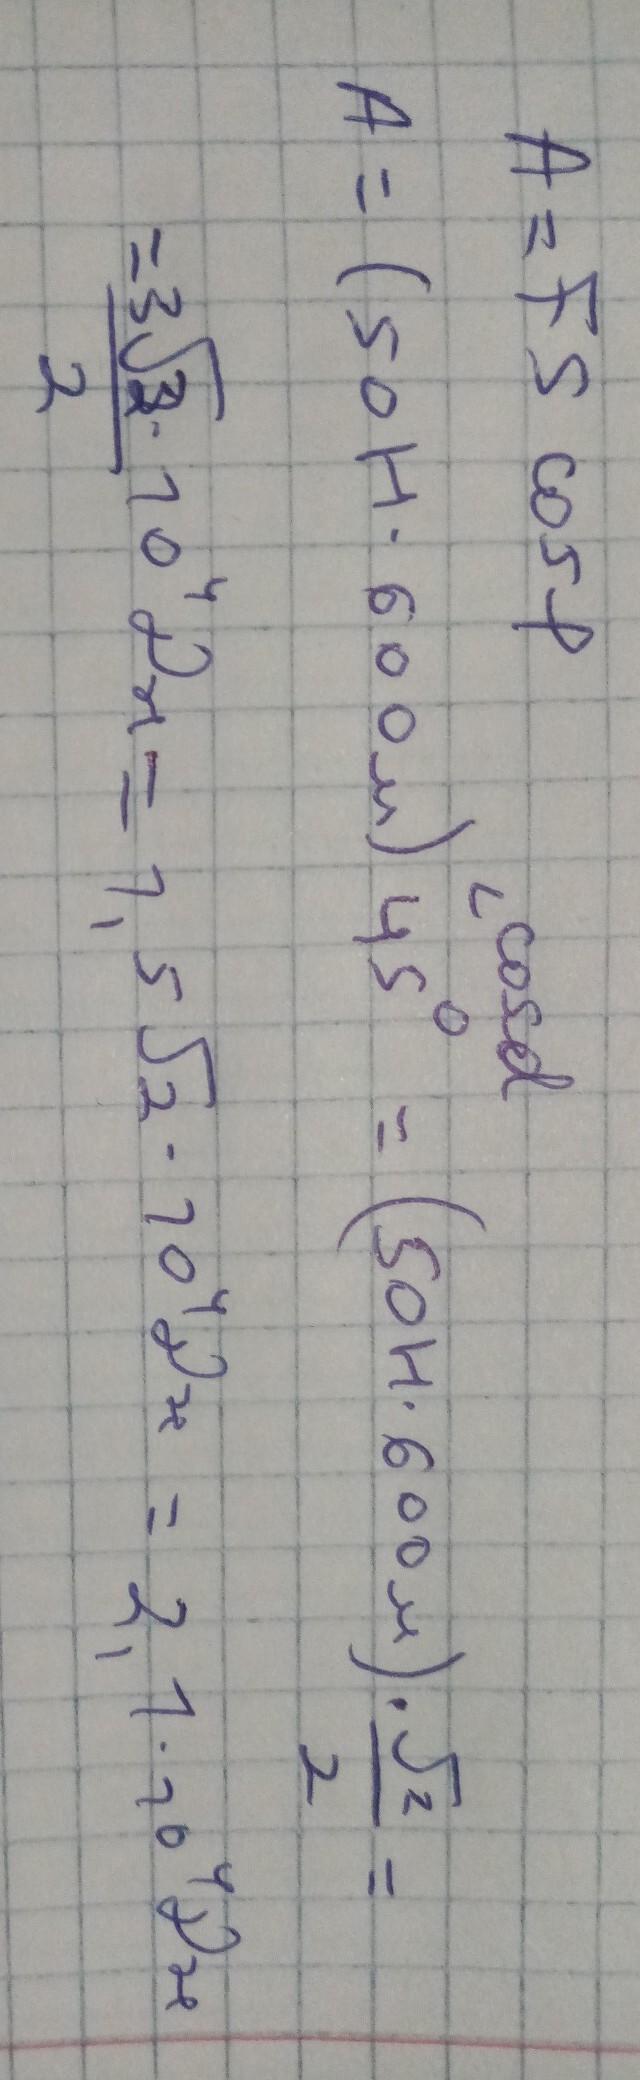 A = FS cosφ
A = (50Н · 600м) cosα 45° = (50Н · 600м) · √2/2 =
= 3√2/2 · 10⁴ Дж = 1,5√2 · 10⁴ Дж = 2,1 · 10⁴ Дж